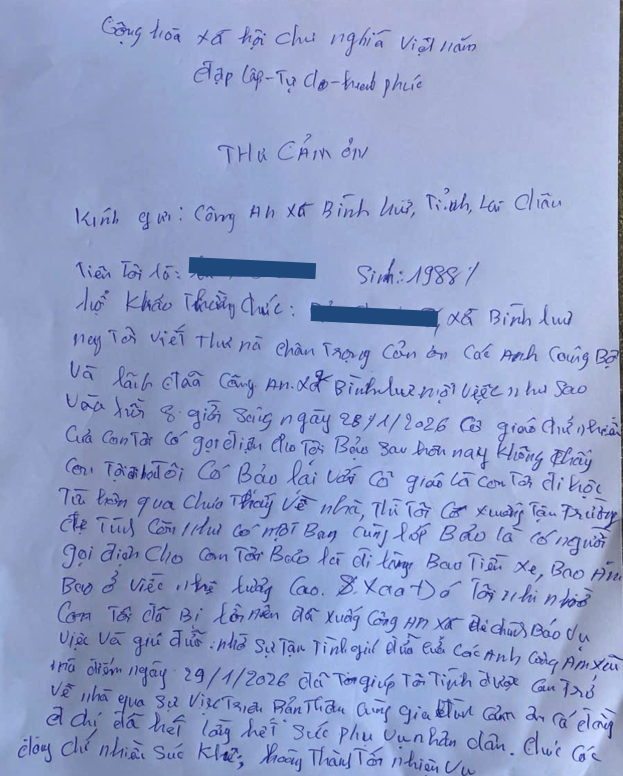 Cộng hòa xã hội chủ nghĩa Việt nam
Độc lập - Tự do - hạnh phúc
THƯ CẢM ƠN
Kính gửi: Công An xã Bình Lư, Tỉnh, Lai Châu
Tiên Tôi là: Sinh: 1988
hộ Khẩu Thường Chức: xã Bình Lư
nay Tôi viết thư nà chân Trọng Cảm ơn Các Anh Cán Bộ
và lãnh đạo Công An xã Bình Lư một việc như sao
vào lúc 8 giờ sáng ngày 28/1/2026 Cô giáo chủ nhiệm
của con Tôi có gọi điện cho Tôi Bảo sau hôm nay không thấy
con Tôi Tôi có Bảo lại với cô giáo là con Tôi đi học
Từ hôm qua chưa Thấy về nhà, Thì Tôi Có xuống Tận Trường
để Tìm Con Thì có một Bạn Cùng lớp Bảo là có người
gọi điện Cho con Tôi Bảo là đi làng Bao Tiền Xe, Bao Ăn
Bao ở việc nhẹ lương Cao. Tôi nghi
Con Tôi đã Bị nên đã xuống Công An xã để Báo vụ
việc và giú đỡ. nhờ Sự Tận Tình của Các Anh Công An
điểm ngày 29/1/2026 đã giúp Tôi Tình được Con Trở
về nhà qua sự việc Bản Thân Cùng gia đình cảm ơn các đồng
chí đã hết lòng hết sức phụ vụ nhân dân. Chúc các
đồng chí nhiều Sức Khỏe, hoàng Thành Tốt nhiên vụ